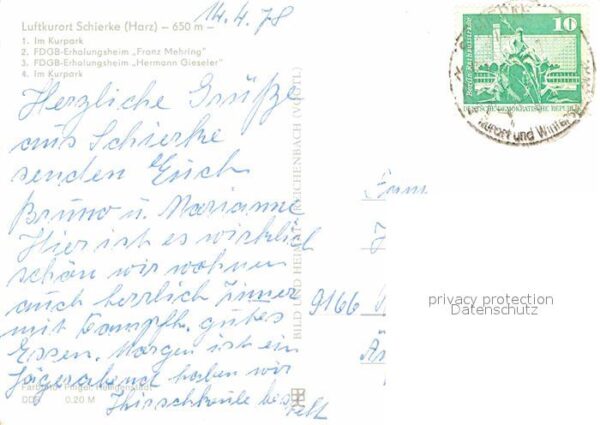 14.4.78
Luftkurort Schierke (Harz) – 650 m –
1. Im Kurpark
2. FDGB-Erholungsheim „Franz Mehring"
3. FDGB-Erholungsheim „Hermann Gieseler"
4. Im Kurpark
Herzliche Grüße
aus Schierke
senden Euch
Bruno u. Marianne
Hier ist es wirklich
schön wir wohnen
auch herrlich Zimer
mit Dampfh. gutes
Essen. Morgen ist ein
Jägerabend haben wir
Hirschkeule bes
tellt
DDR 0.20 M
BILD UND HEIMAT REICHENBACH (VOGTL)
10
Berlin, Rathausstraße
DEUTSCHE DEMOKRATISCHE REPUBLIK
Kurort und Winters
Fam
9166
privacy protection
Datenschutz